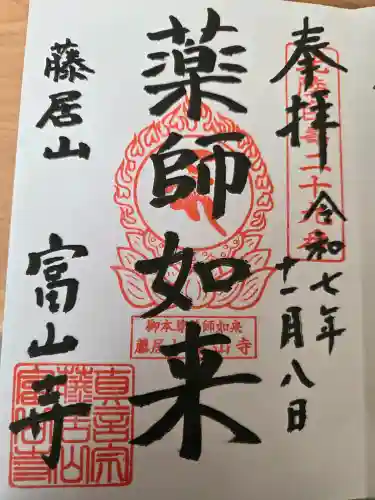 奉拝
令和七年
十一月八日
薬師如来
御本尊薬師如来
藤居山富山寺
藤居山
富山寺
真言宗
藤居山
富山寺